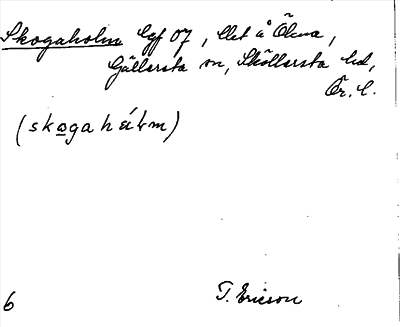 Skogaholm lgf 07, llet å Ökna,
Gällersta sn, Sköllersta hd,
Ör. l.
(skogahálm)
6
T. Ericson